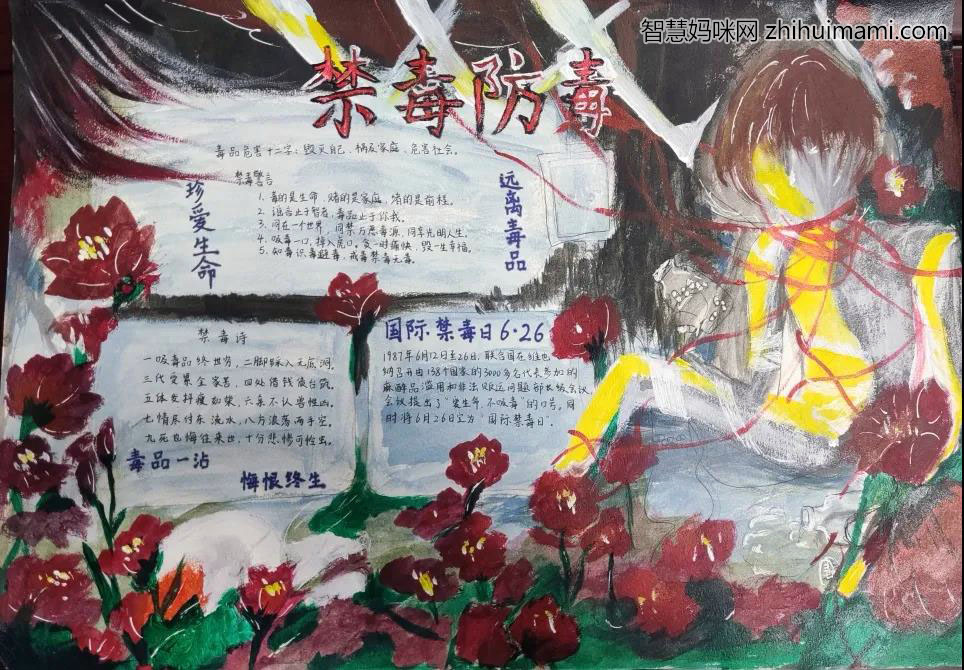 智慧妈咪网 zhihuimami.com
禁毒防毒
毒品危害十二字：毁灭自己、祸及家庭、危害社会。
禁毒警言
珍爱生命
远离毒品
1. 毒的是生命，赌的是家庭，堵的是前程。
2. 谣言止于智者，毒品止于你我。
3. 同在一个世界，同禁万恶毒源，同享光明人生。
4. 吸毒一口，掉入虎口，贪一时痛快，毁一生幸福。
5. 知毒识毒避毒，戒毒禁毒无毒。
禁毒诗
一吸毒品终世穷，二脚踩入无底洞。
三代受累全家苦，四处借钱债台
五体支料瘦如柴，六亲不认兽性凶。
七情尽付东流水，八方浪荡两手空。
九死也悔往来世，十分悲惨可怜虫。
毒品一沾
悔恨终生
国际禁毒日6·26
1987年6月12日至26日，联合国在维也
纳召开由138个国家的3000多名代表参加的
麻醉品滥用和非法贩运问题部长级会议
会议提出了“爱生命，不吸毒”的口号。同
时将6月26日定为“国际禁毒日”。